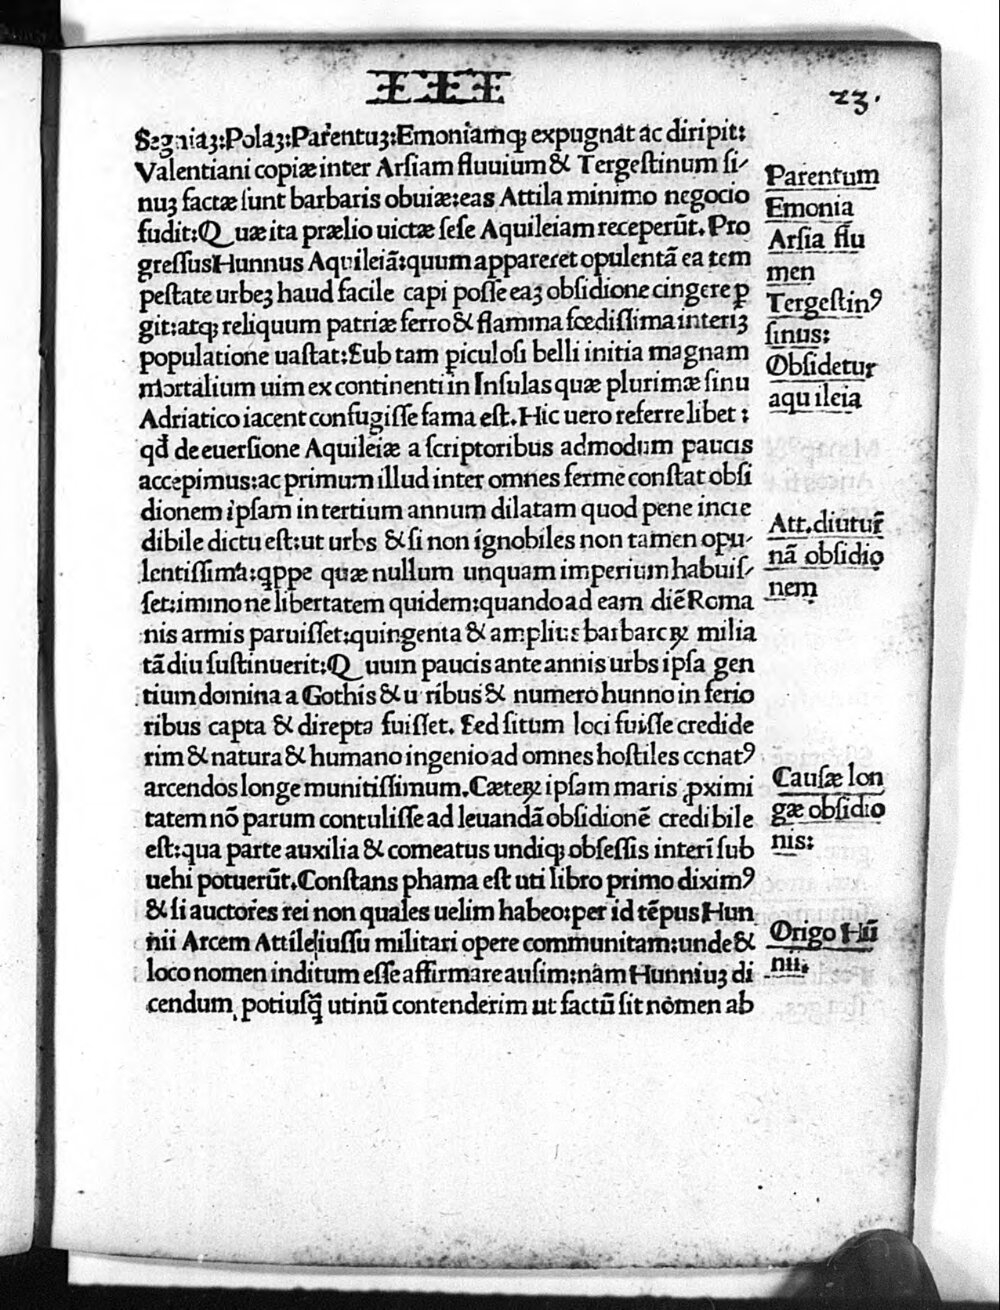 III
23.
Segniaꝫ:Polaꝫ:Parentuꝫ:Emoniamqꝫ expugnat ac diripit:
Valentiani copiæ inter Arſiam fluuium & Tergeſtinum ſi-
nuꝫ factæ ſunt barbaris obuiæ:eas Attila minimo negocio
fudit:Quæ ita prælio uictæ ſeſe Aquileiam receperūt. Pro
greſſus Hunnus Aquileiā:quum appareret opulentā ea tem
peſtate urbeꝫ haud facile capi poſſe eaꝫ obſidione cingere ꝑ
git:atqꝫ reliquum patriæ ferro & flamma fœdiſſima interiꝫ
populatione uaſtat:Sub tam ꝑiculoſi belli initia magnam
mortalium uim ex continenti in Inſulas quæ plurimæ ſinu
Adriatico iacent confugiſſe fama eſt. Hic uero referre libet:
qđ de euerſione Aquileiæ a ſcriptoribus admodum paucis
accepimus:ac primum illud inter omnes ferme conſtat obſi
dionem ipſam in tertium annum dilatam quod pene incre
dibile dictu eſt:ut urbs & ſi non ignobiles non tamen opu-
lentiſſima:qppe quæ nullum unquam imperium habuiſ-
ſet:immo ne libertatem quidem:quando ad eam diē Roma
nis armis paruiſſet:quingenta & amplius barbaroꝝ milia
tādiu ſuſtinuerit:Quum paucis ante annis urbs ipſa gen
tium domina a Gothis & uiribus & numero hunno inferio
ribus capta & direpta fuiſſet. Sed ſitum loci fuiſſe credide
rim & natura & humano ingenio ad omnes hoſtiles conatꝰ
arcendos longe munitiſſimum. Cæteꝝ ipſam maris ꝓximi
tatem nō parum contuliſſe ad leuandā obſidionē credibile
eſt:qua parte auxilia & comeatus undiqꝫ obſeſſis interī ſub
uehi potuerūt. Conſtans phama eſt uti libro primo diximꝰ
& ſi auctores rei non quales uelim habeo:per id tēpus Hun
nii Arcem Attilę iuſſu militari opere communitam:unde &
loco nomen inditum eſſe affirmare auſim:nam Hunniuꝫ di
cendum potiuſq̄ utinū contenderim ut factū ſit nomen ab
Parentum
Emonia
Arſia flu
men
Tergeſtinꝰ
ſinus:
Obſidetur
aquileia
Att. diutur
nā obſidio
nem
Cauſæ lon
gæ obſidio
nis:
Origo Hū
nii.